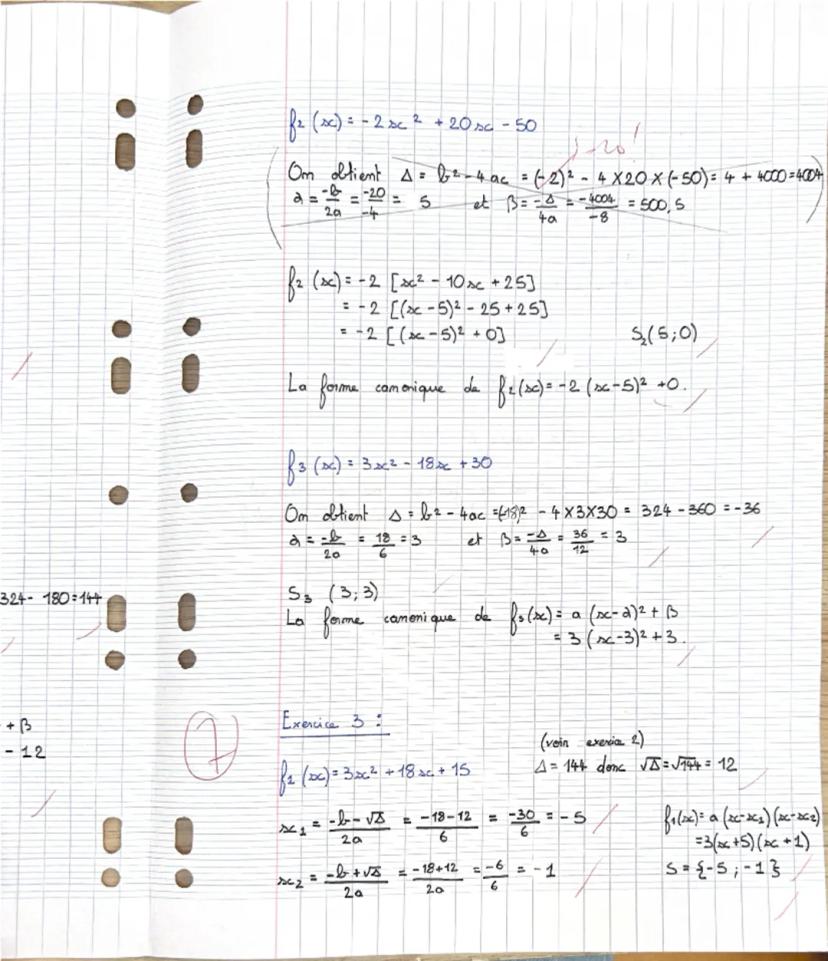 f₂(x) = -2x² + 20x - 50
-20!
On obtient Δ = b² - 4ac = (-2)² - 4 × 20 × (-50) = 4 + 4000 = 4004
α = -b/2a = -20/-4 = 5 et β = -Δ/4a = -4004/-8 = 500,5
f₂(x) = -2 [x² - 10x + 25]
= -2 [(x - 5)² - 25 + 25]
= -2 [(x - 5)² + 0] S₂(5;0)
La forme canonique de f₂(x) = -2 (x-5)² + 0.
f₃(x) = 3x² - 18x + 30
On obtient Δ = b² - 4ac = (-18)² - 4 × 3 × 30 = 324 - 360 = -36
α = -b/2a = 18/6 = 3 et β = -Δ/4a = 36/12 = 3
S₃ (3;3)
324 - 180 = 144
La forme canonique de f₃(x) = a (x-α)² + β
= 3 (x-3)² + 3.
+ β
- 12
7
Exercice 3 :
(voir exercice 2)
f₁(x) = 3x² + 18x + 15 Δ = 144 donc √Δ = √144 = 12
x₁ = -b - √Δ/2a = -18 - 12/6 = -30/6 = -5
x₂ = -b + √Δ/2a = -18 + 12/2a = -6/6 = -1
f₁(x) = a (x-x₁) (x-x₂)
= 3(x+5) (x+1)
S = {-5 ; -1}